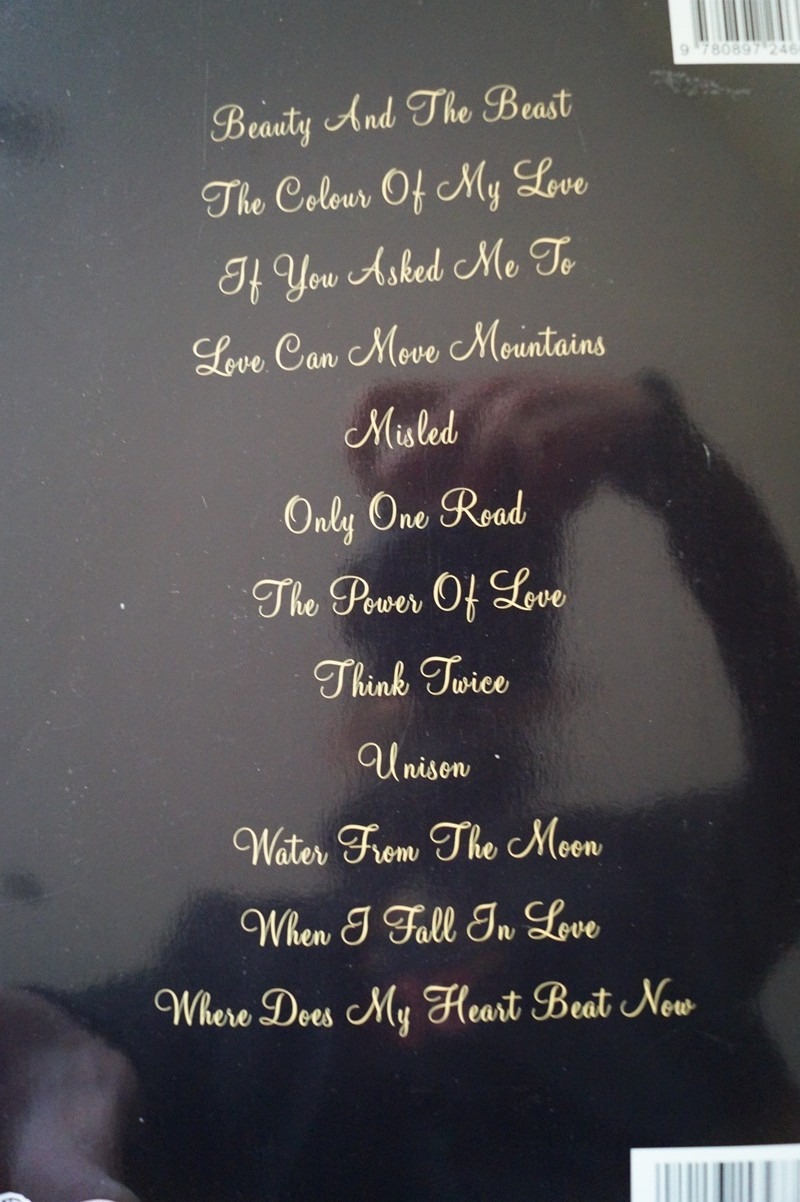 9 780897 246
Beauty And The Beast
The Colour Of My Love
If You Asked Me To
Love Can Move Mountains
Misled
Only One Road
The Power Of Love
Think Twice
Unison
Water From The Moon
When I Fall In Love
Where Does My Heart Beat Now